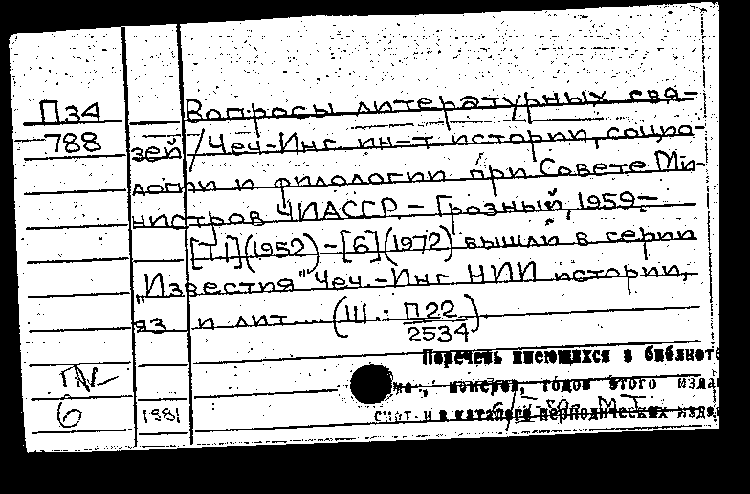 П34 Вопросы литературных свя-
788 зей / Чеч-Инг. ин-т истории, социо-
логии и филологии при Совете Ми-
нистров ЧИАССР. - Грозный, 1959-
[Т.1](1952) - [6](1972) вышли в серии
„Известия" Чеч.-Инг НИИ истории,
яз и лит.... (Ш.: П22
2534)
Перечень имеющихся в библиоте
номеров, годов этого изда
6 1981 смот. и в каталоге периодических изда